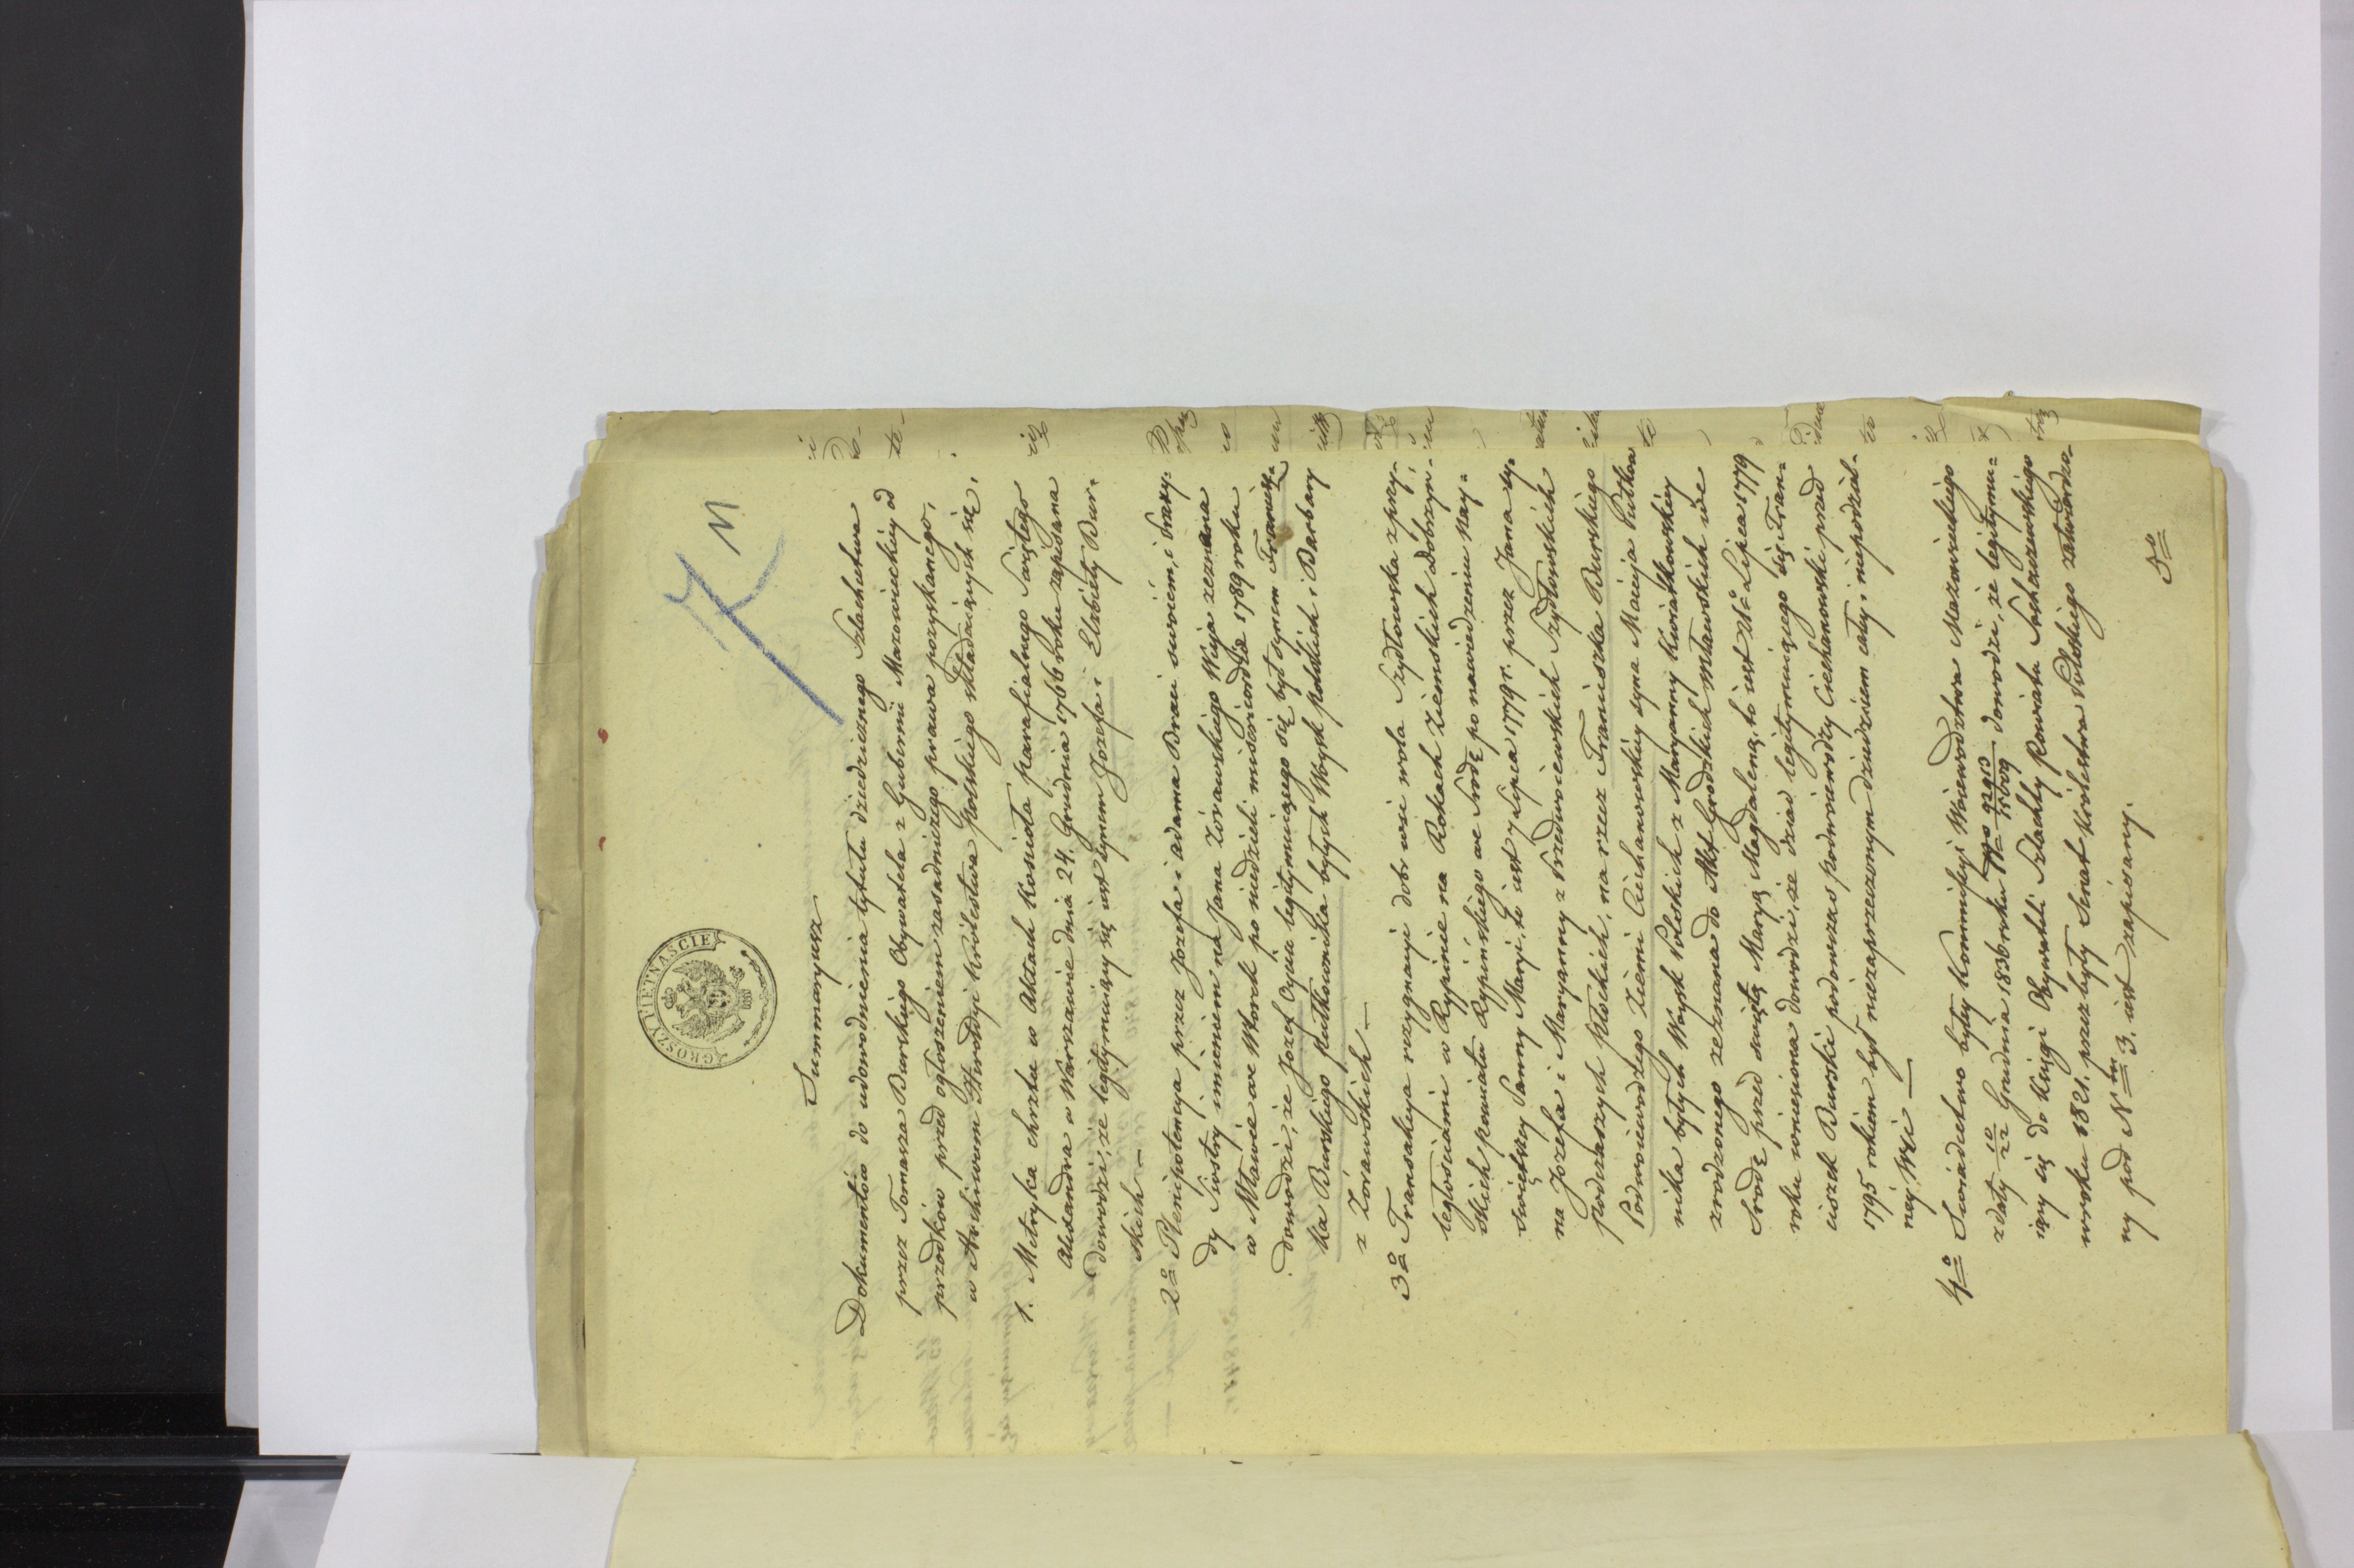 GROSZY PIETNASCIE
Summaryusz
Dokumentów do udowodnienia tytułu dziedzicznego Szlachectwa
przez Tomasza Burskiego Obywatela z Gubernii Mazowieckiéy od
przodków przed ogłoszeniem zasadniczego prawa pozyskanego,
w Archiwum Heroldyi Królestwa Polskiego składaiących się.
1. Metryka chrztu w Aktach Kościoła parafialnego Świętego
Alexandra w Warszawie dnia 24. Grudnia 1766 roku zapisana
dowodzi, że legitymuiący się iest synem Jozefa i Elżbiety Bur-
skich —
2o Plenipotencya przez Jozefa i Adama Braci swoiém, i Brary-
dy Siostry imieniem na Jana Zórawskiego Wieja zeznana
w Mławie we Wtorek po niedzieli misericordiae 1789 roku
dowodzi, że Jozef Oyciec legitymuiącego się był synem Franciszka
ka Burskiego pułkownika byłych Woysk polskich i Barbary
z Zórawskich —
3o Transakcya rezygnacyi dobr wsi wola Szydłowska z przy-
ległościami w Rypinie na Rokach Ziemskich Dobrzyn-
skich powiatu Rypińskiego we Srodę po nawiedzeniu Nay-
świętszey Panny Maryi, to iest 7 Lipca 1779 r. przez Jana sy-
na Józefa i Maryanny z Szedwoiewskich Szydłowskich
Podczaszych Płockich, na rzecz Franciszka Burskiego
Podwoiewodzego Ziemi Ciechanowskiéy syna Macieja Pułkow
nika byłych Woysk Polskich z Maryanny Kwiatkowskiéy
zrodzonego zeznana do Akt Grodzkich Mławskich we
Srodę przed świętą Maryą Magdaleną, to iest 21o Lipca 1779
roku wniesiona dowodzi, że dziad legitymuiącego się Fran-
ciszek Burski podowczas podwoiewodzy Ciechanowski przed
1795 rokiem był niezaprzeczonym dziedzicem całéy i niepodziel-
néy Wsi —
4o Swiadectwo byłéy Kommissyi Woiewodztwa Mazowieckiego
z daty 10/22 Grudnia 1836 roku No 92913/15009 dowodzi, że legitymu-
iący się do Księgi Obywateli Szlachty Powiatu Sochaczewskiego
w roku 1821. przez były Senat Królestwa Polskiego zatwierdzo-
ny pod Nrm 3. iest zapisany.
5o